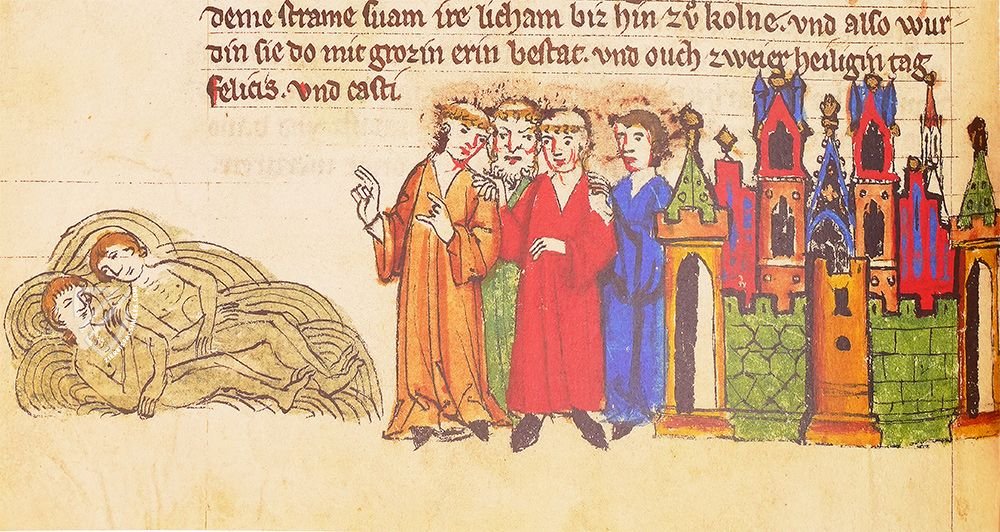 deme strame suam ire licham biz hin zů kolne. vnd also wur
din sie do mit grozin erin bestat. vnd ouch zweier heiligin tag
felicis. vnd casti